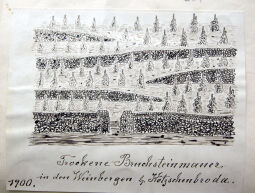 Trockene Bruchsteinmauer
in den Weinbergen b. Kötzschenbroda.
1900.